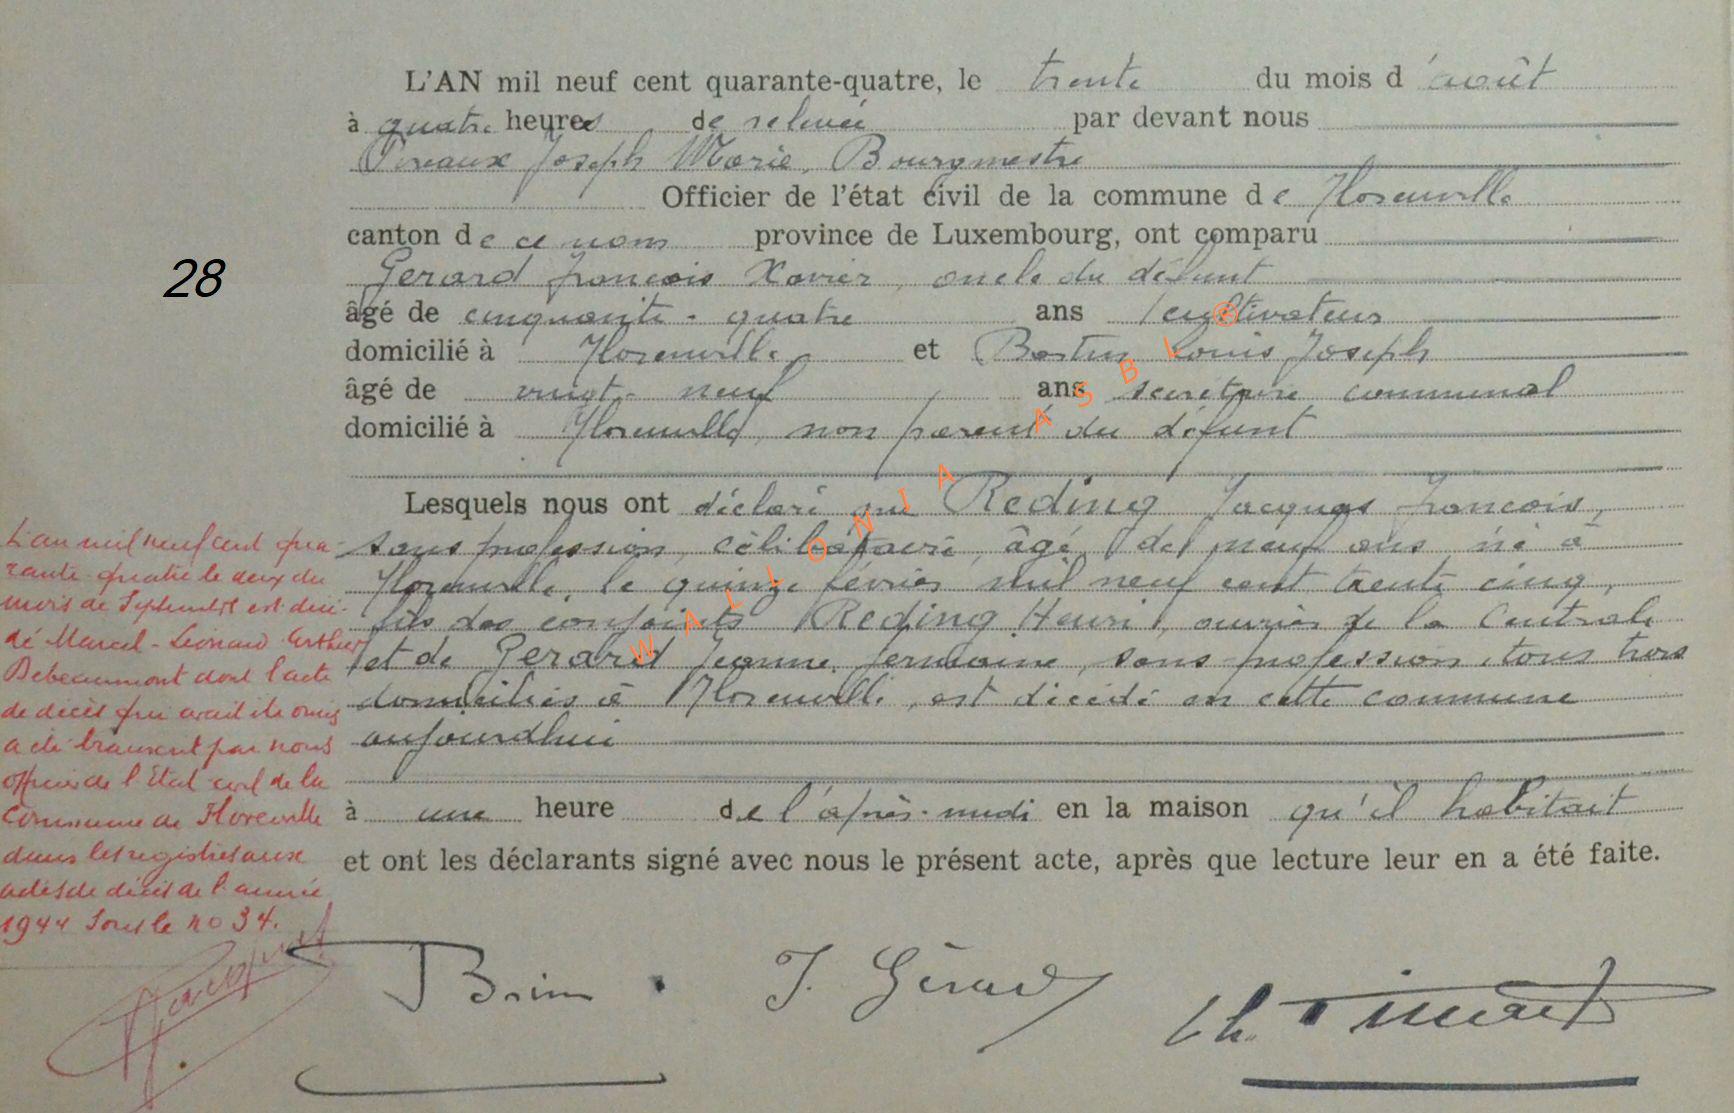 L'AN mil neuf cent quarante-quatre, le trente du mois d'août
à quatre heures de relevée par devant nous
Joseph Marie, Bourgmestre
Officier de l'état civil de la commune de Florenville
canton de ce nom province de Luxembourg, ont comparu
Gerard François Xavier, oncle du défunt
âgé de cinquante-quatre ans, cultivateur
domicilié à Florenville et Louis Joseph
âgé de vingt-neuf ans secrétaire communal
domicilié à Florenville, non parent du défunt
Lesquels nous ont déclaré que Reding Jacques François,
sans profession, célibataire, âgé de neuf ans, né à
Florenville, le quinze février mil neuf cent trente cinq,
fils des conjoints Reding Henri, ouvrier de la Centrale
et de Gerard Jeanne Germaine, sans profession, tous trois
domiciliés à Florenville, est décédé en cette commune
aujourdhui
à une heure de l'après-midi en la maison qu'il habitait
et ont les déclarants signé avec nous le présent acte, après que lecture leur en a été faite.
28
L'an mil neuf cent qua-
rante-quatre le deux du
mois de Septembre est décé-
dé Marcel-Léonard
Debeaumont dont l'acte
de décès qui avait été omis
a été transcrit par nous
officier de l'Etat civil de la
Commune de Florenville
dans les registres aux
actes de décès de l'année
1944 sous le no 34.
J. Gérard
WALLONIA ASBL ®